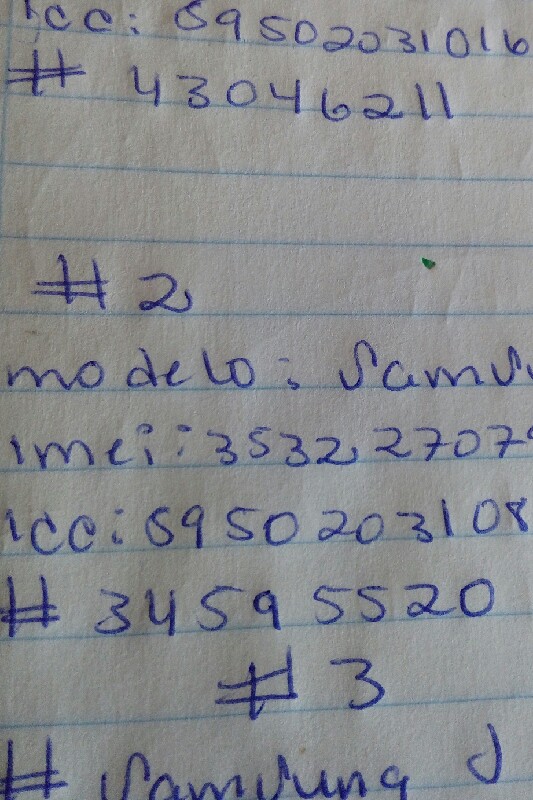 icc: 59502031016
# 43046211
# 2
modelo: Samsu
imei: 353227079
icc: 5950203108
# 34595520
# 3
# Samsung J